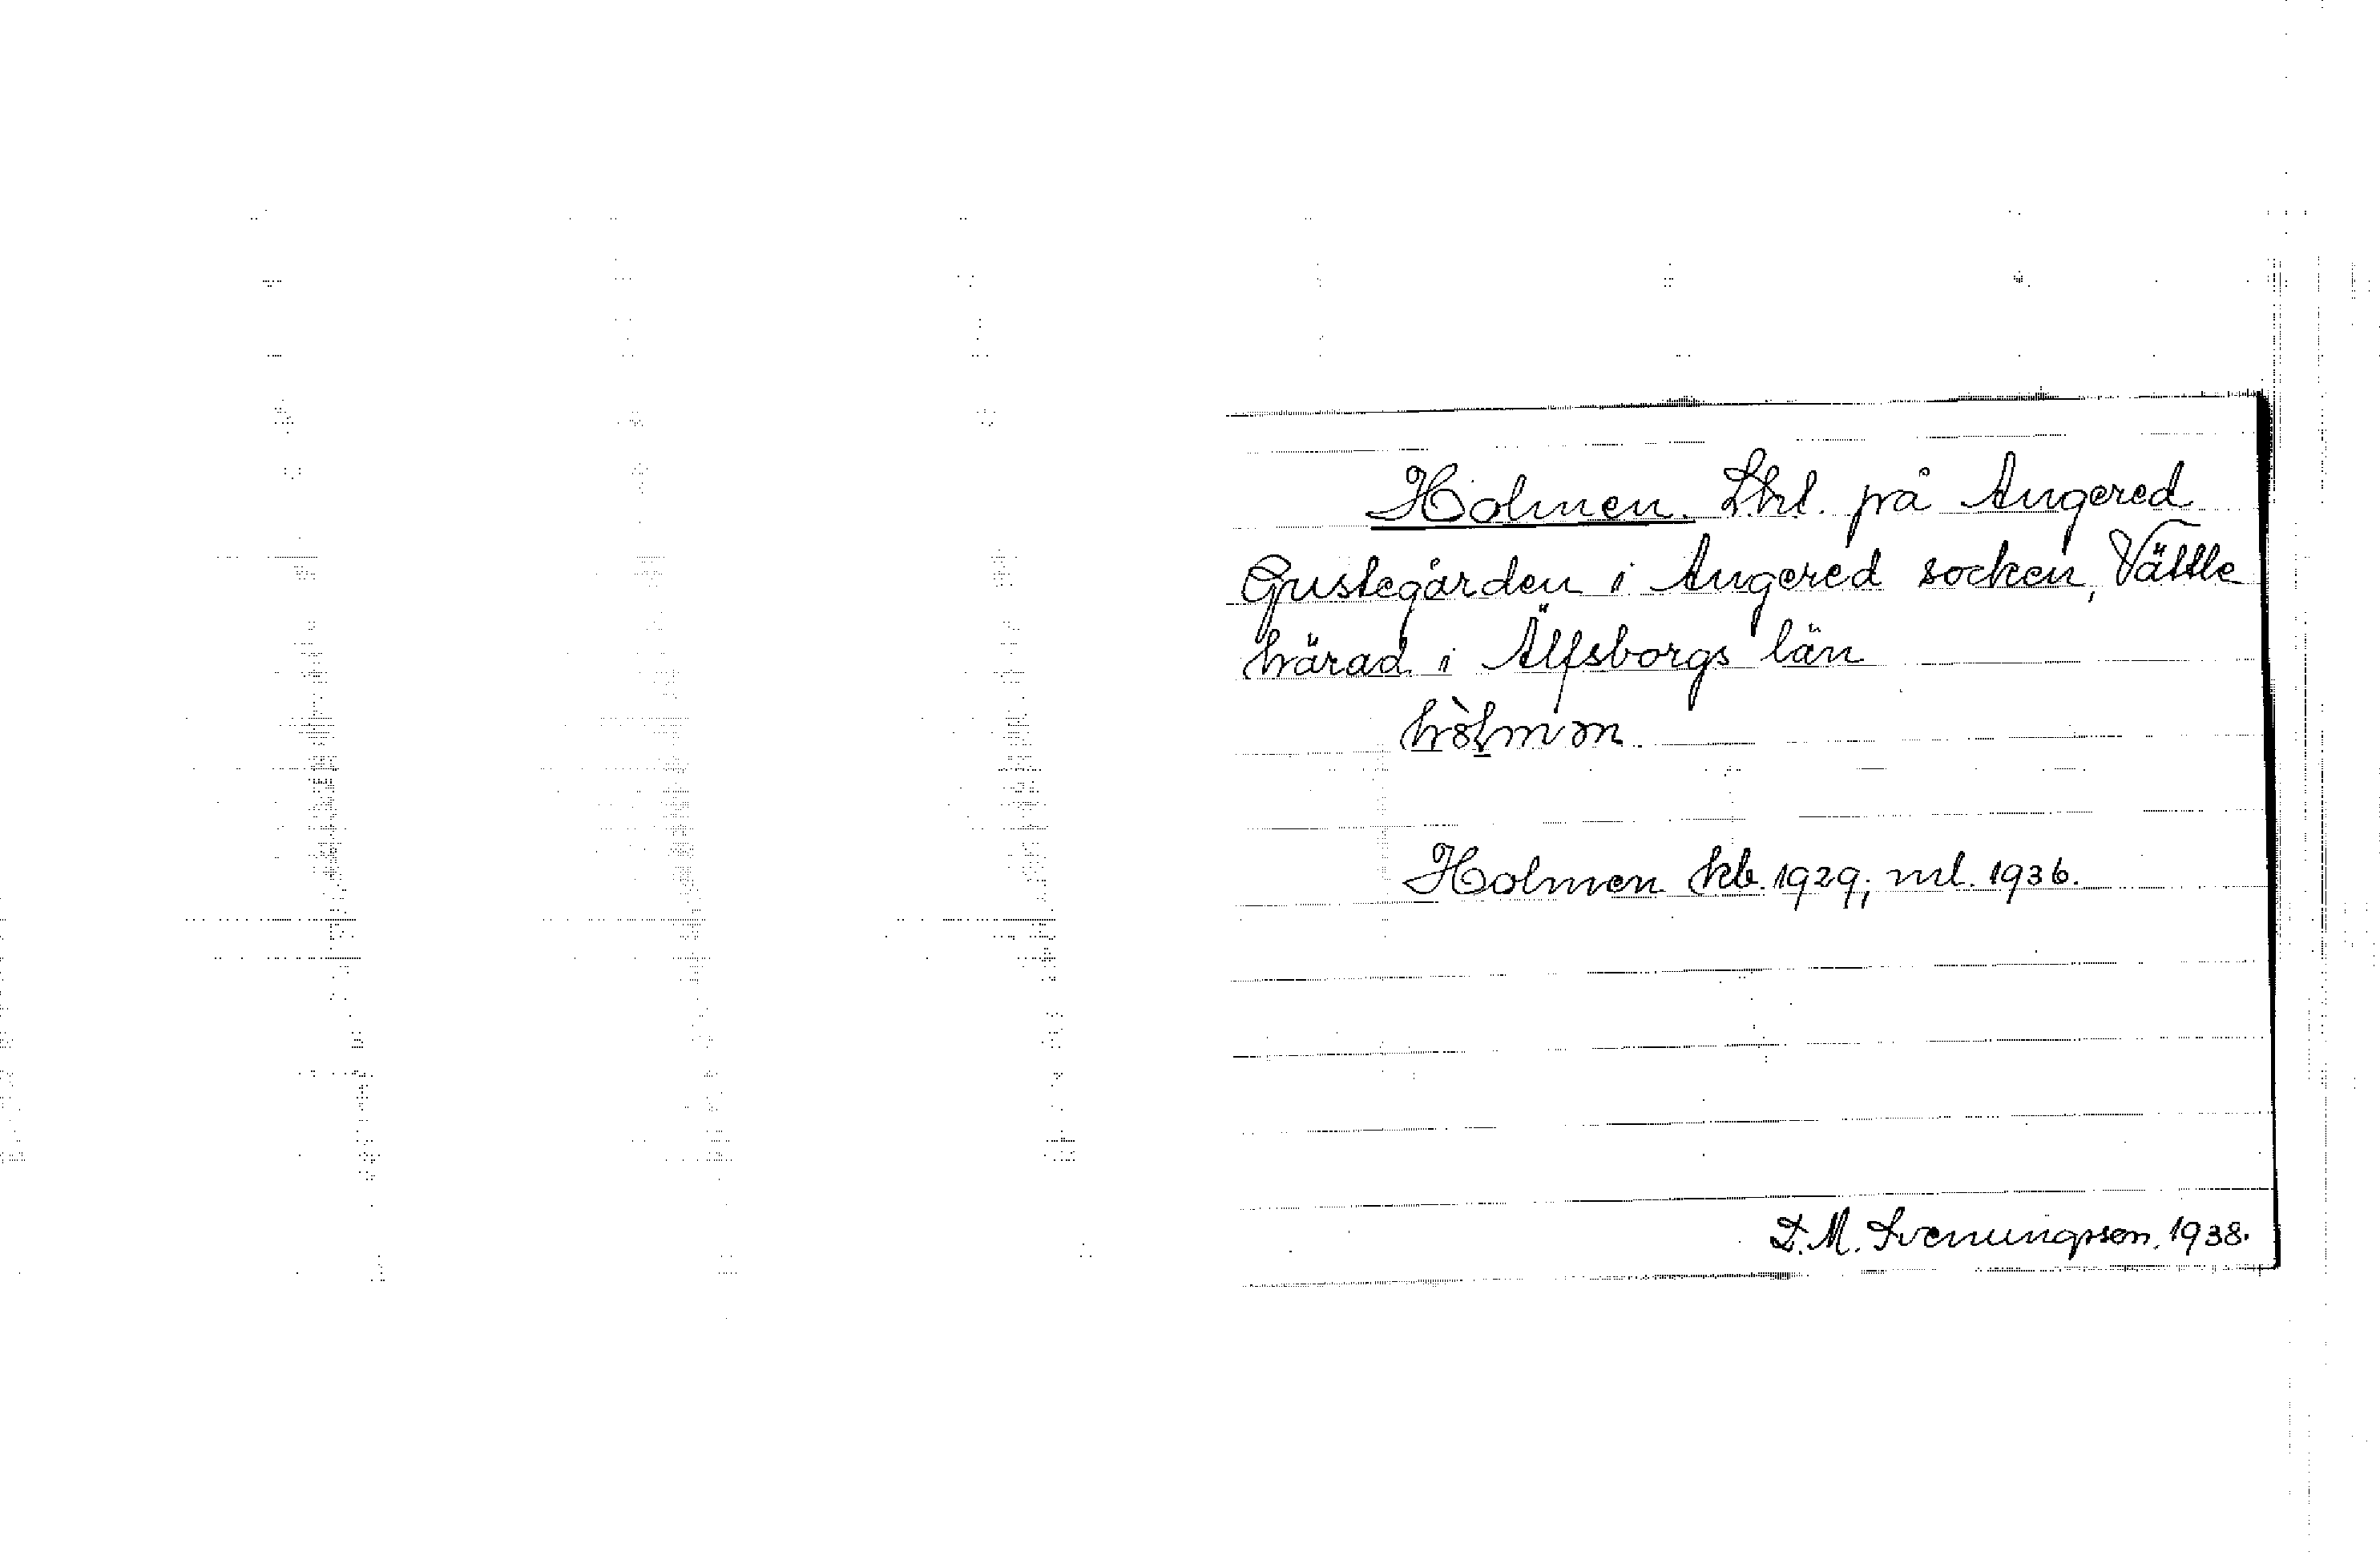 Holmen. Lhl. på Angered
Gustegården i Angered socken, Vättle
härad i Älfsborgs län
Holmen kb. 1929; ml. 1936.
D. M. Svenungsson. 1938.